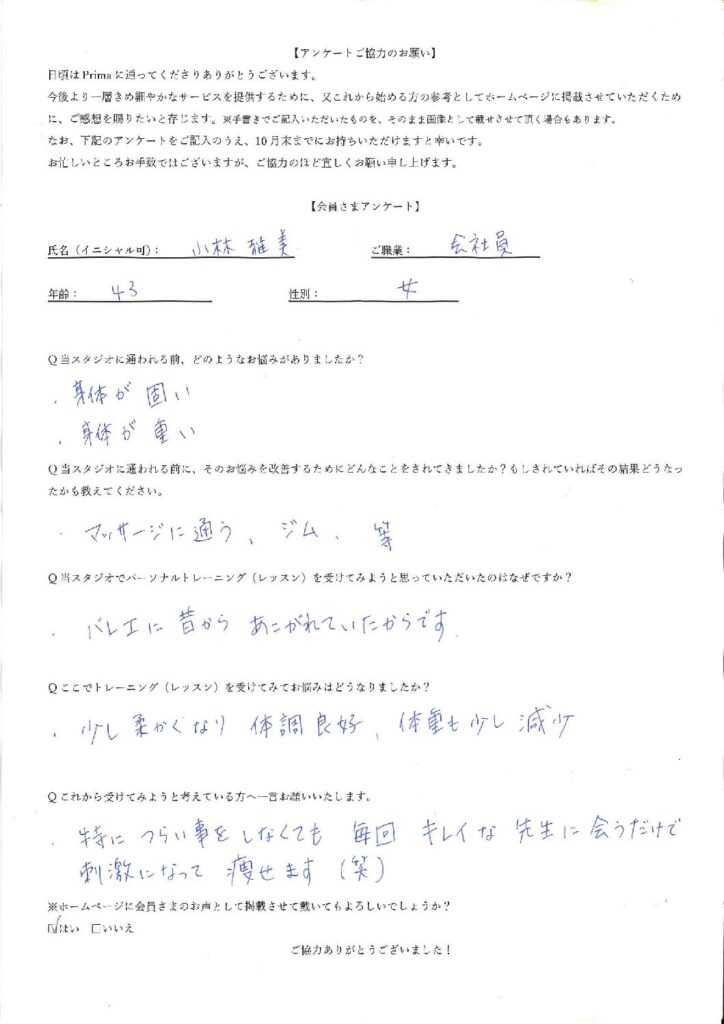 【アンケートご協力のお願い】
日頃はPrimaに通ってくださりありがとうございます。
今後より一層きめ細やかなサービスを提供するために、又これから始める方の参考としてホームページに掲載させていただくため
に、ご感想を賜りたいと存じます。※手書きでご記入いただいたものを、そのまま画像として載せさせて頂く場合もあります。
なお、下記のアンケートをご記入のうえ、10月末までにお持ちいただけますと幸いです。
お忙しいところお手数ではございますが、ご協力のほど宜しくお願い申し上げます。
【会員さまアンケート】
氏名（イニシャル可）： 小林 雅美 ご職業： 会社員
年齢： 43 性別： 女
Q 当スタジオに通われる前、どのようなお悩みがありましたか？
・身体が 固い
・身体が 重い
Q 当スタジオに通われる前に、そのお悩みを改善するためにどんなことをされてきましたか？もしされていればその結果どうなっ
たかも教えてください。
・マッサージに通う、ジム、等
Q 当スタジオでパーソナルトレーニング（レッスン）を受けてみようと思っていただいたのはなぜですか？
・バレエに昔から あこがれていたからです
Q ここでトレーニング（レッスン）を受けてみてお悩みはどうなりましたか？
・少し柔かくなり 体調良好、体重も少し減少
Q これから受けてみようと考えている方へ一言お願いいたします。
・特に つらい事をしなくても 毎回 キレイな 先生に会うだけで
刺激になって 痩せます（笑）
※ホームページに会員さまのお声として掲載させて戴いてもよろしいでしょうか？
☑はい □いいえ
ご協力ありがとうございました！